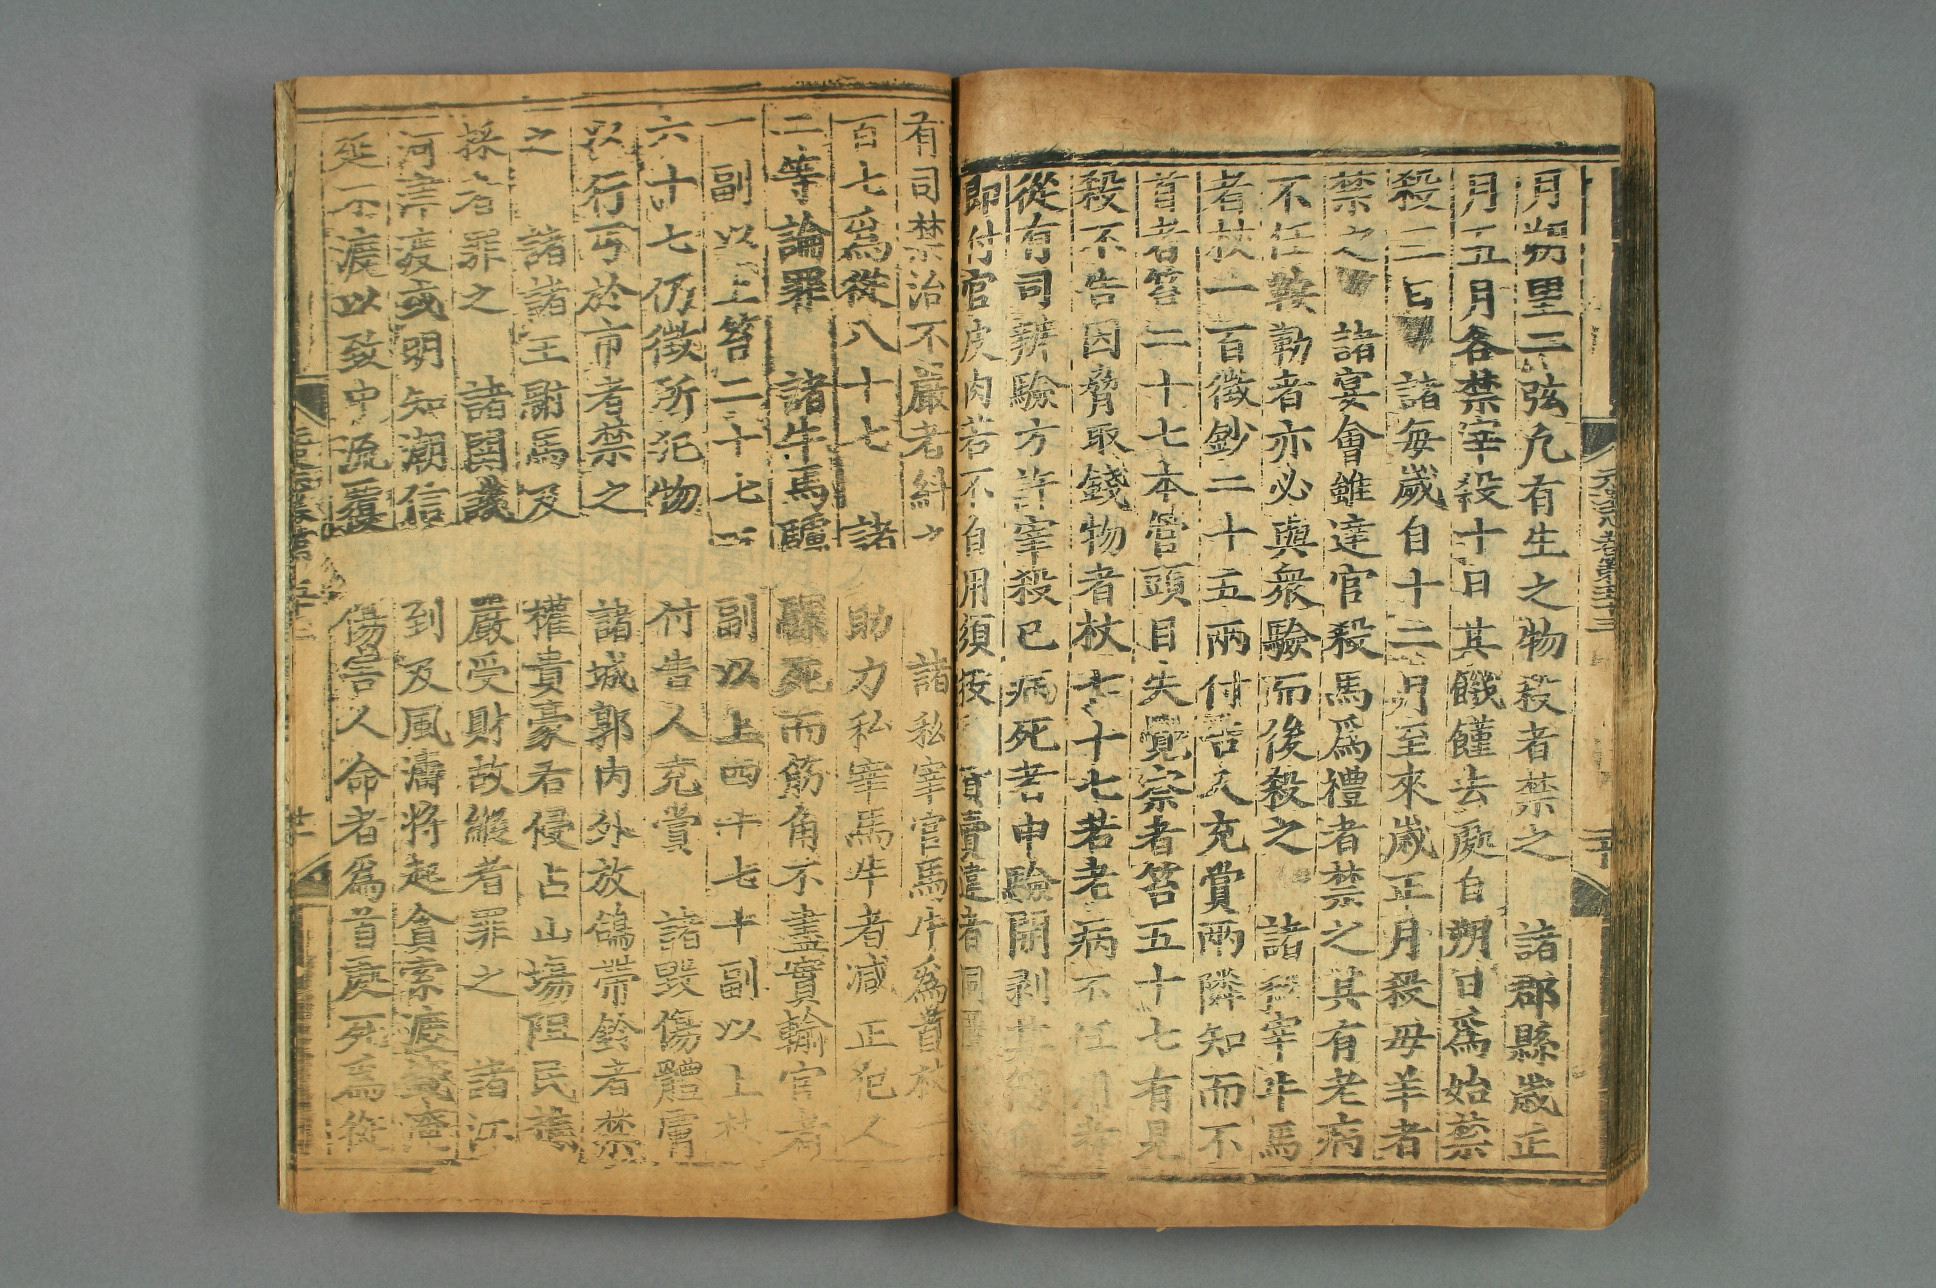 月朔望二弦凡有生之物殺者禁之　諸郡縣歲正
月五月各禁宰殺十日其饑饉去處自朔日爲始禁
殺三日　諸每歲自十二月至來歲正月殺母羊者
禁之　諸宴會雖達官殺馬爲禮者禁之其有老病
不任鞍勒者亦必與衆驗而後殺之　諸私宰牛馬
者杖一百徵鈔二十五兩付告人充賞兩隣知而不
首者笞二十七本管頭目失覺察者笞五十七有見
殺不告因脅取錢物者杖七十七若老病不任用者
從有司辨驗方許宰殺已病死者申驗開剥其筋角
即付官皮肉若不自用須投 貨賣違者同
有司禁治不嚴者糾之　諸私宰官馬牛爲首杖一
百七爲從八十七　諸助力私宰馬牛者减正犯人
二等論罪　諸牛馬驢騾死而筋角不盡實輸官者
一副以上笞二十七 副以上四十七十副以上杖
六十七仍徵所犯物付告人充賞　諸毀傷體膚
以行丐於市者禁之　諸城郭內外放鴿帶鈴者禁
之　諸諸王駙馬及權貴豪右侵占山塲阻民樵
採者罪之　諸關譏嚴受財故縱者罪之　諸江
河濟渡或明知潮信到及風濤將起貪索渡錢淹
延不渡以致中流覆 傷害人命者爲首處死爲從